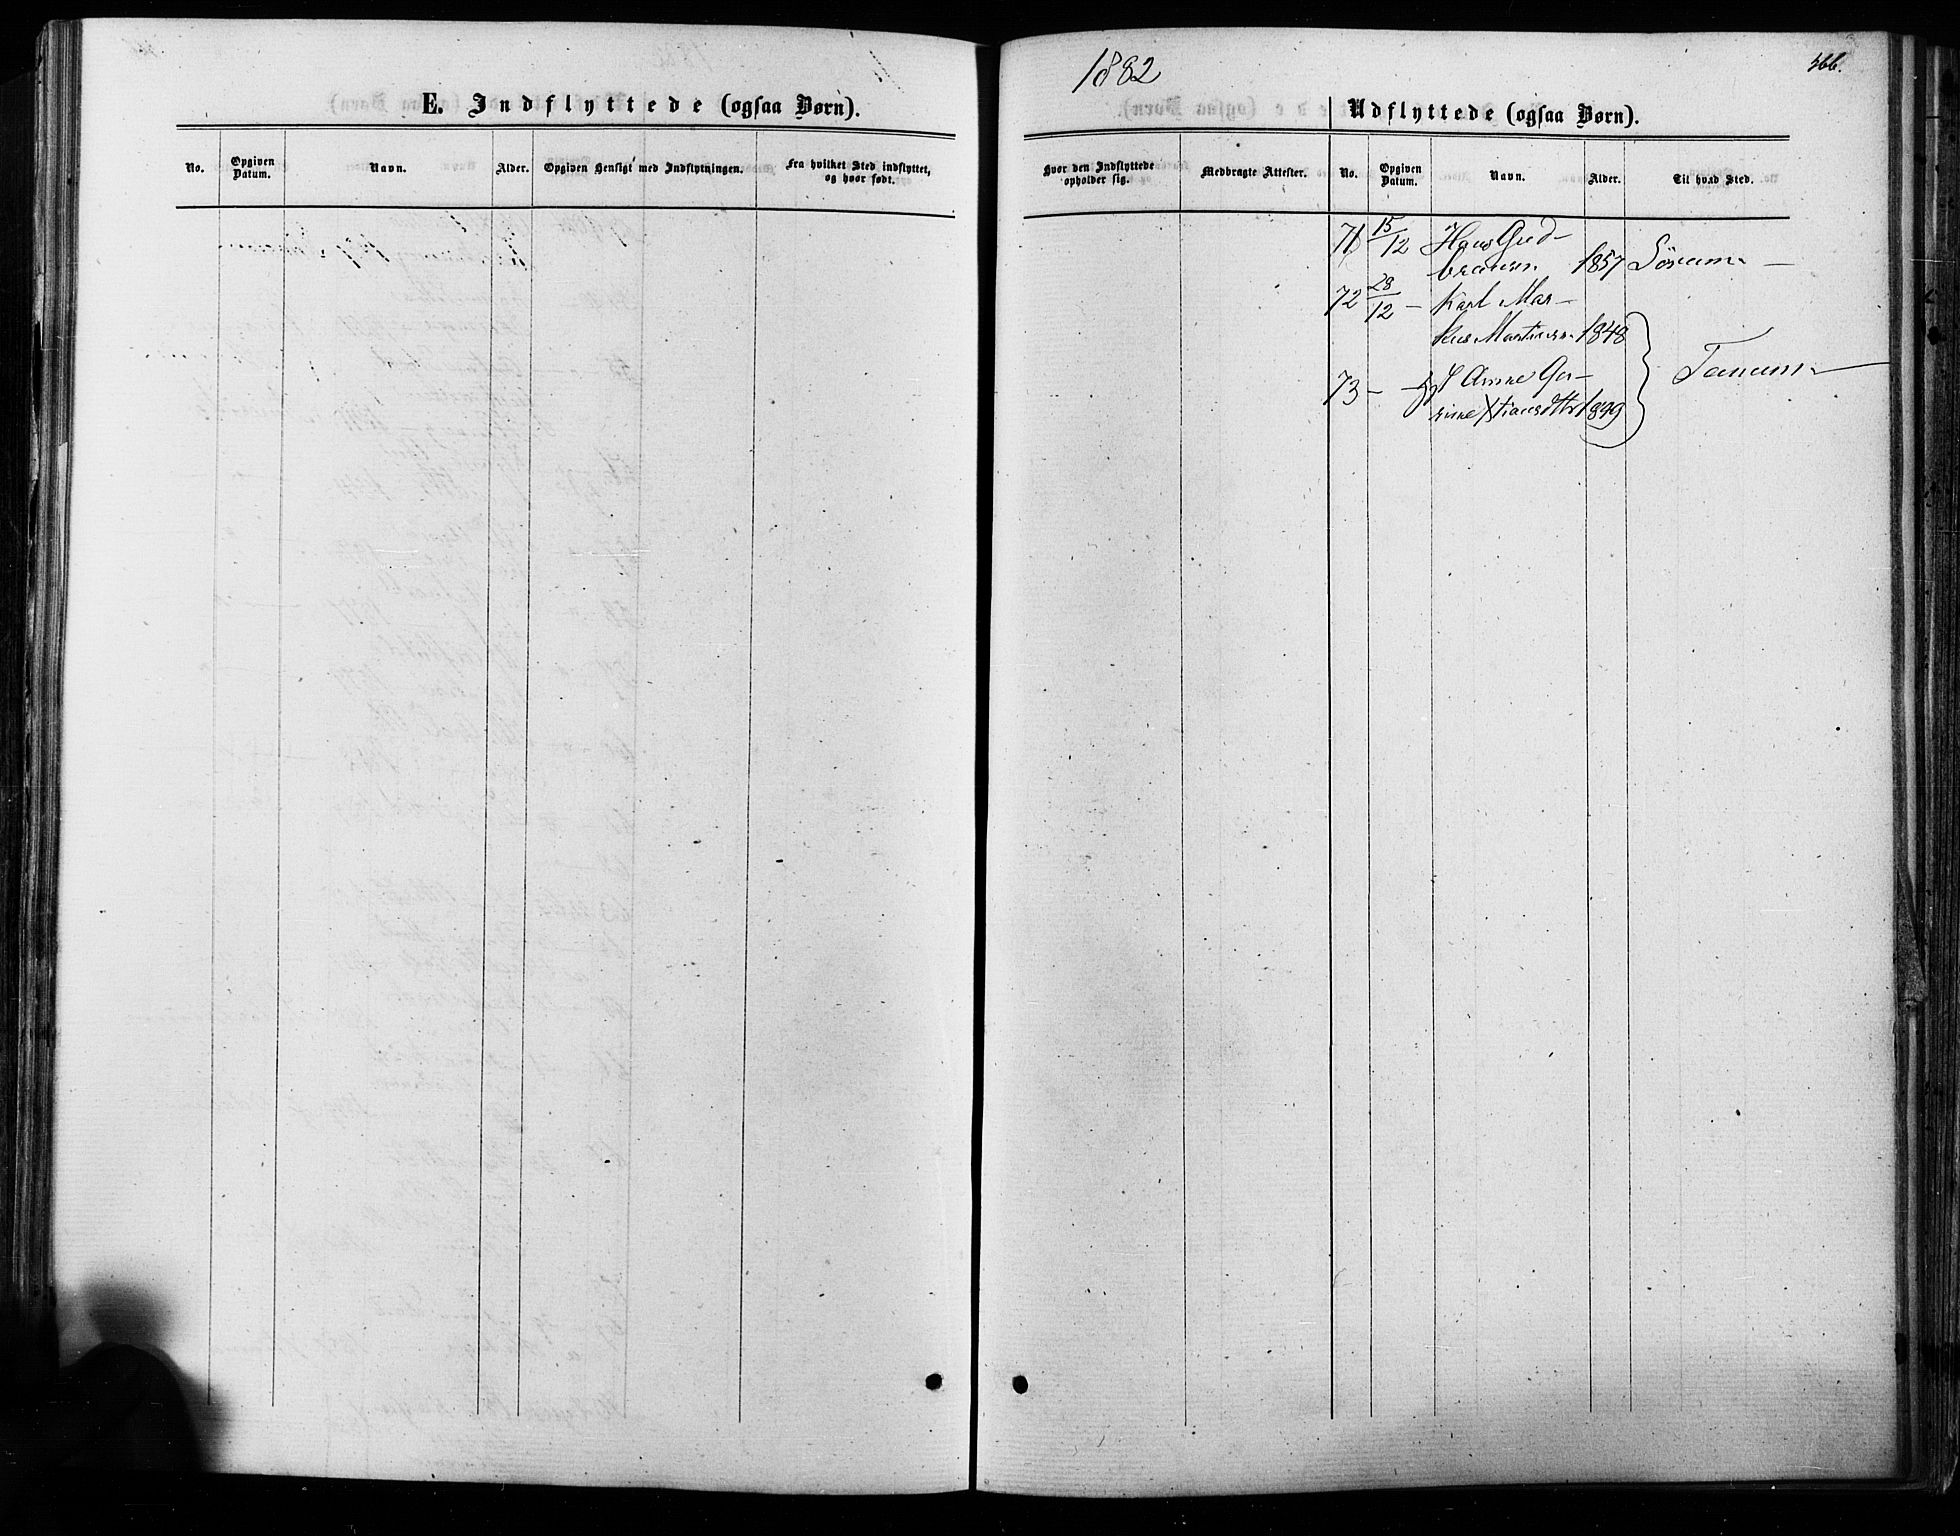 E. Indflyttede (ogsaa Børn).
No.
Opgiven Datum.
Navn.
Alder.
Opgiven Hensigt med Indflytningen.
Fra hvilket Sted indflyttet, og hvor født.
1882
366.
Udflyttede (ogsaa Børn).
Hvor den Indflyttede opholder sig.
Medbragte Attester.
No.
Opgiven Datum.
Navn.
Alder.
Til hvad Sted.
71 15/12 Hans Gud-
bransen 1857 Sörum
72 28/12 – Karl Mar-
kus Martinsen 1848
73 – Anne Gu-
rine Xtiansdttr 1849 Tanum